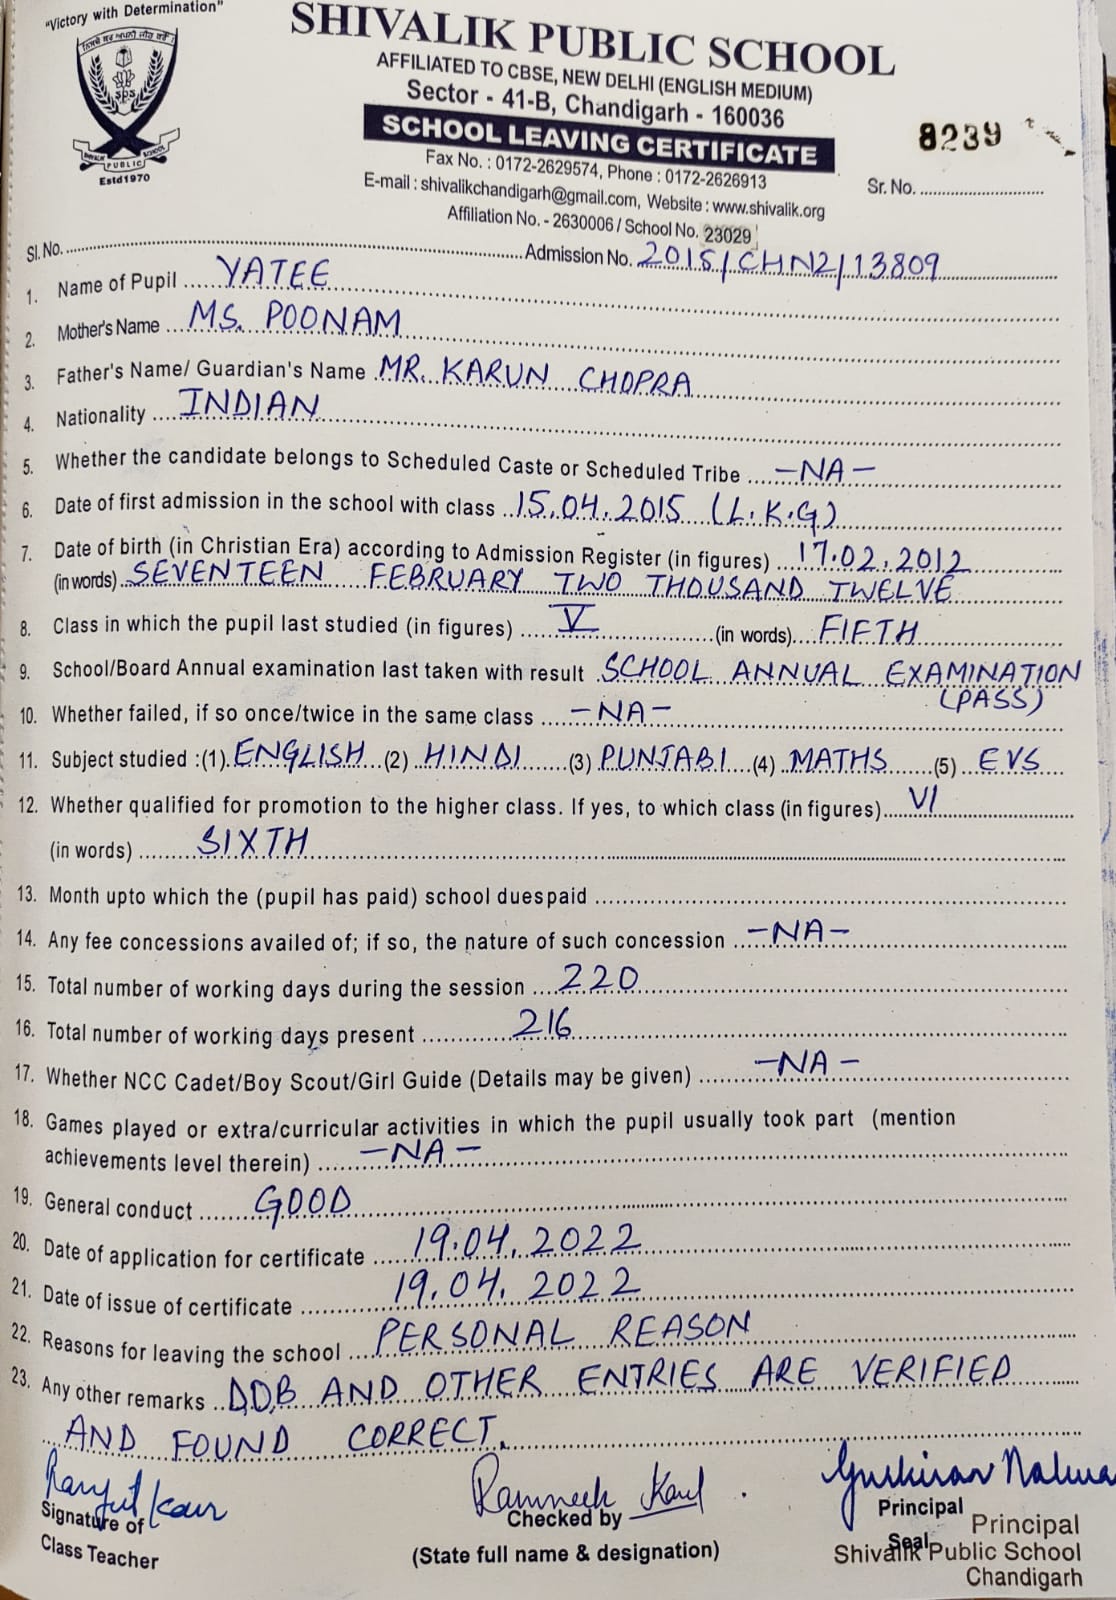 "Victory with Determination"
SHIVALIK PUBLIC SCHOOL
AFFILIATED TO CBSE, NEW DELHI (ENGLISH MEDIUM)
Sector - 41-B, Chandigarh - 160036
SCHOOL LEAVING CERTIFICATE
8239
Fax No. : 0172-2629574, Phone : 0172-2626913
Sr. No. ..............................
E-mail : shivalikchandigarh@gmail.com, Website : www.shivalik.org
Affiliation No. - 2630006 / School No. 23029
SPS
SHIVALIK PUBLIC SCHOOL
Estd1970
Sl. No. .............................. Admission No. 2015/CHN2/13809
1. Name of Pupil ...... YATEE
2. Mother's Name ... MS. POONAM
3. Father's Name/ Guardian's Name .MR. KARUN CHOPRA
4. Nationality .... INDIAN
5. Whether the candidate belongs to Scheduled Caste or Scheduled Tribe ... -NA-
6. Date of first admission in the school with class .. 15.04.2015 (L.K.G)
7. Date of birth (in Christian Era) according to Admission Register (in figures) ... 17.02.2012
(in words) .. SEVENTEEN FEBRUARY TWO THOUSAND TWELVE
8. Class in which the pupil last studied (in figures) ...... V ...... (in words).... FIFTH
9. School/Board Annual examination last taken with result .SCHOOL ANNUAL EXAMINATION
(PASS)
10. Whether failed, if so once/twice in the same class .... -NA-
11. Subject studied :(1). ENGLISH (2) HINDI (3) PUNJABI (4) MATHS (5) EVS
12. Whether qualified for promotion to the higher class. If yes, to which class (in figures).... VI
(in words) ........ SIXTH
13. Month upto which the (pupil has paid) school duespaid ..............................
14. Any fee concessions availed of; if so, the nature of such concession ... -NA-
15. Total number of working days during the session .... 220
16. Total number of working days present ........ 216
17. Whether NCC Cadet/Boy Scout/Girl Guide (Details may be given) ...... -NA-
18. Games played or extra/curricular activities in which the pupil usually took part (mention
achievements level therein) ...... -NA-
19. General conduct ...... GOOD
20. Date of application for certificate .... 19.04.2022
21. Date of issue of certificate ........ 19.04.2022
22. Reasons for leaving the school ... PERSONAL REASON
23. Any other remarks .. D.O.B AND OTHER ENTRIES ARE VERIFIED
AND FOUND CORRECT.
Ramneek Kaul
Gurkiran Nalwa
Signature of
Class Teacher
Checked by
(State full name & designation)
Principal
Seal
Principal
Shivalik Public School
Chandigarh